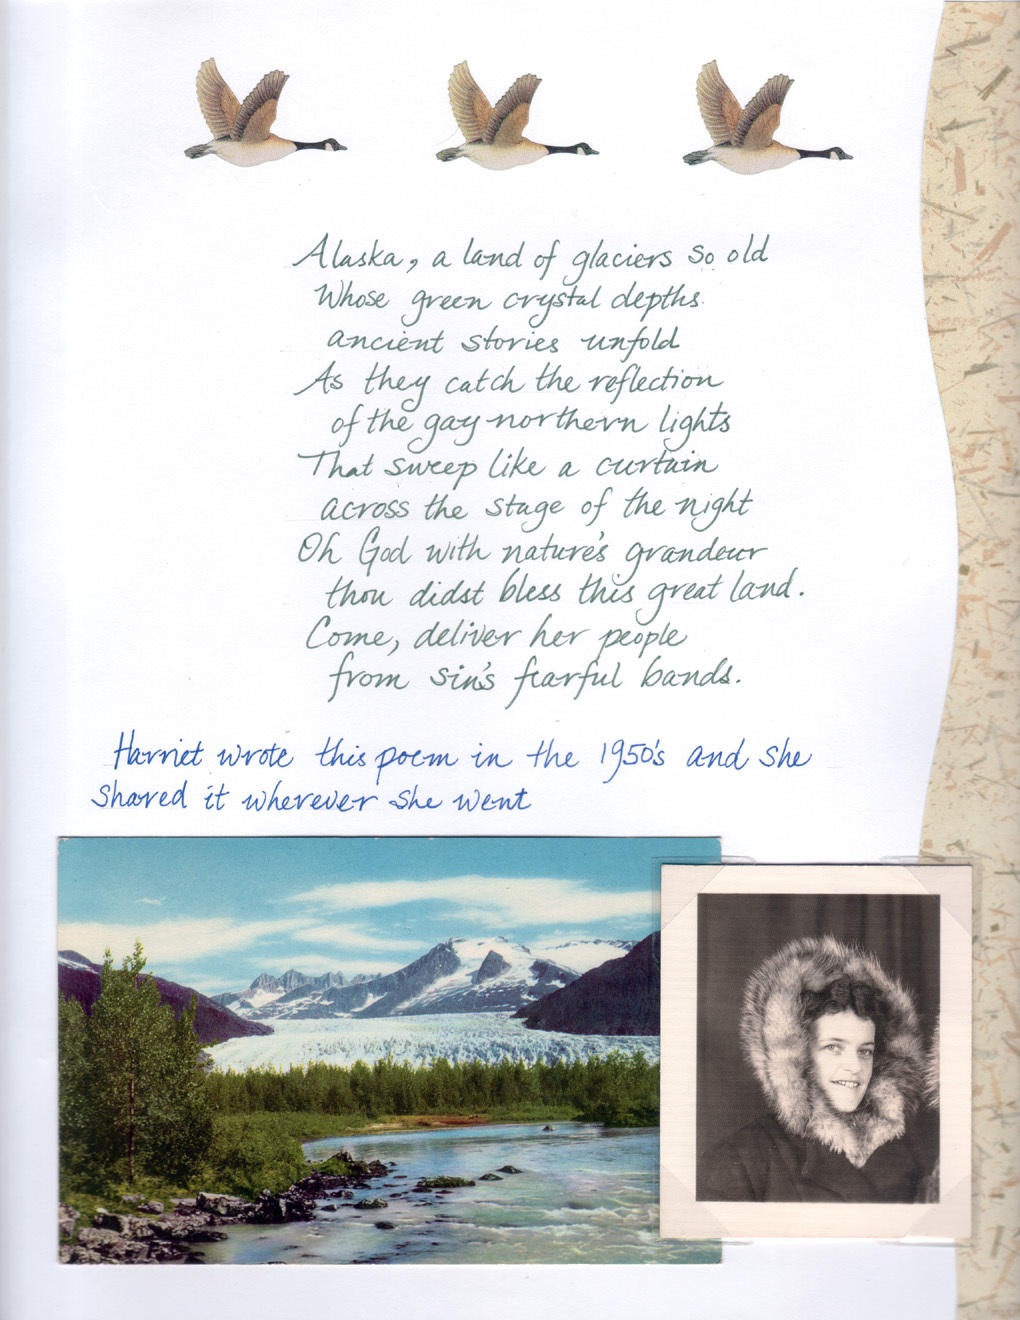 Alaska, a land of glaciers so old
Whose green crystal depths
ancient stories unfold
As they catch the reflection
of the gay northern lights
That sweep like a curtain
across the stage of the night
Oh God with nature's grandeur
thou didst bless this great land.
Come, deliver her people
from sin's fearful bands.
Harriet wrote this poem in the 1950's and she
shared it wherever she went